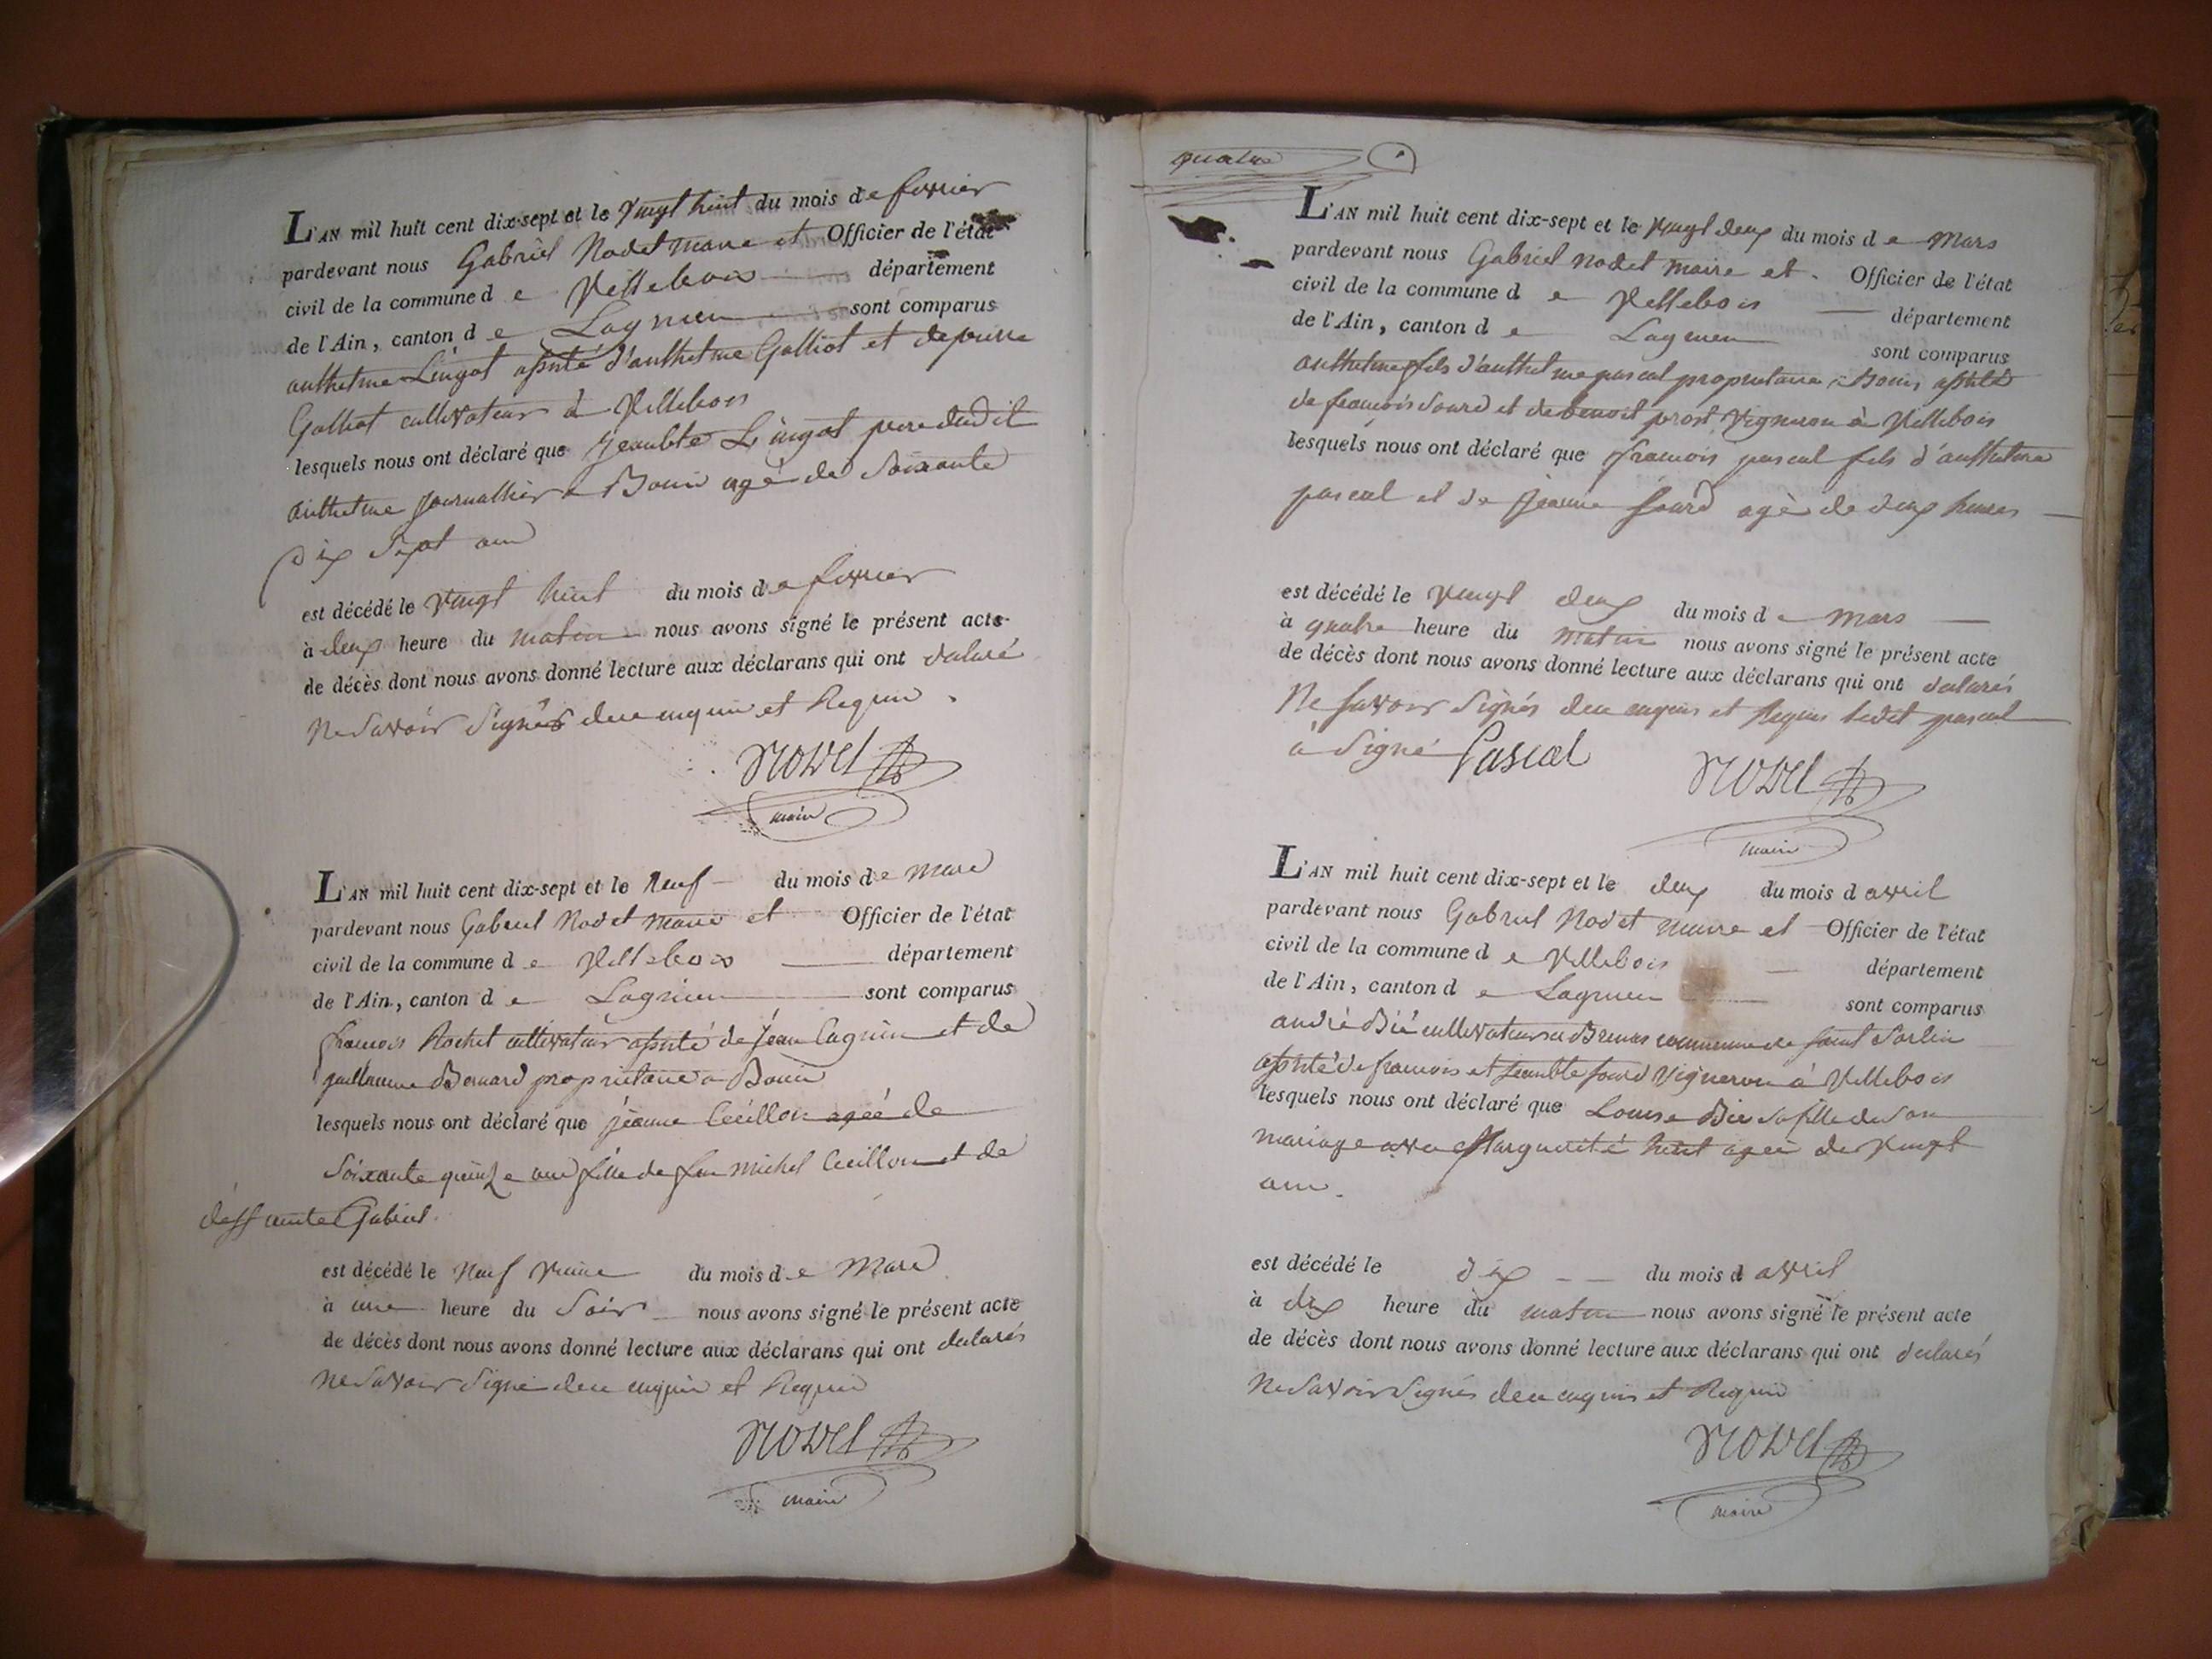 L'AN mil huit cent dix-sept et le vingt huit du mois de fevrier
pardevant nous Gabriel Nodet maire et Officier de l'état
civil de la commune de Villebois département
de l'Ain, canton de Lagnieu sont comparus
anthelme Lingot assisté d'anthelme Galliot et de pierre
Galliot cultivateur à Villebois
lesquels nous ont déclaré que Jeanbte Lingot pere dudit
anthelme journallier a Bouis agé de soixante
Dix Sept ans
est décédé le vingt huit du mois de fevrier
à deux heure du matin nous avons signé le présent acte
de décès dont nous avons donné lecture aux déclarans qui ont declaré
Ne savoir signés de ce enquis et Requis.
NODET
maire
L'AN mil huit cent dix-sept et le Neuf du mois de Mars
pardevant nous Gabriel Nodet maire et Officier de l'état
civil de la commune de Villebois département
de l'Ain, canton de Lagnieu sont comparus
francois Rochet cultivateur assisté de Jean Cagnin et de
guillaume Bernard proprietaire a Bouis
lesquels nous ont déclaré que jeanne Cecillon agée de
soixante quinze ans fille de feu Michel Cecillon et de
deffunte Gabriel.
est décédé le Neuf du mois de Mars
à une heure du Soir nous avons signé le présent acte
de décès dont nous avons donné lecture aux déclarans qui ont declarés
Ne savoir signé de ce enquis et Requis
NODET
maire
quatre
L'AN mil huit cent dix-sept et le vingt deux du mois de Mars
pardevant nous Gabriel Nodet maire et Officier de l'état
civil de la commune de Villebois département
de l'Ain, canton de Lagnieu sont comparus
anthelme fils d'anthelme pascal proprietaire a Bouis assisté
de francois Sourd et de benoit prost Vigneron à Villebois
lesquels nous ont déclaré que francois pascal fils d'anthelme
pascal et de Jeanne Sourd agé de deux heures
est décédé le vingt deux du mois de Mars
à quatre heure du matin nous avons signé le présent acte
de décès dont nous avons donné lecture aux déclarans qui ont declarés
Ne savoir signés de ce enquis et Requis ledit pascal
à signé Pascal
NODET
maire
L'AN mil huit cent dix-sept et le deux du mois d avril
pardevant nous Gabriel Nodet maire et Officier de l'état
civil de la commune de Villebois département
de l'Ain, canton de Lagnieu sont comparus
andré Bié cultivateur a commune de Saint Sorlin
assisté de francois et Jeanbte Sourd Vigneron à Villebois
lesquels nous ont déclaré que Louise Bié sa fille de son
mariage avec Marguerite agée de vingt
ans.
est décédé le dix du mois d avril
à dix heure du matin nous avons signé le présent acte
de décès dont nous avons donné lecture aux déclarans qui ont declarés
Ne savoir signés de ce enquis et Requis
NODET
maire